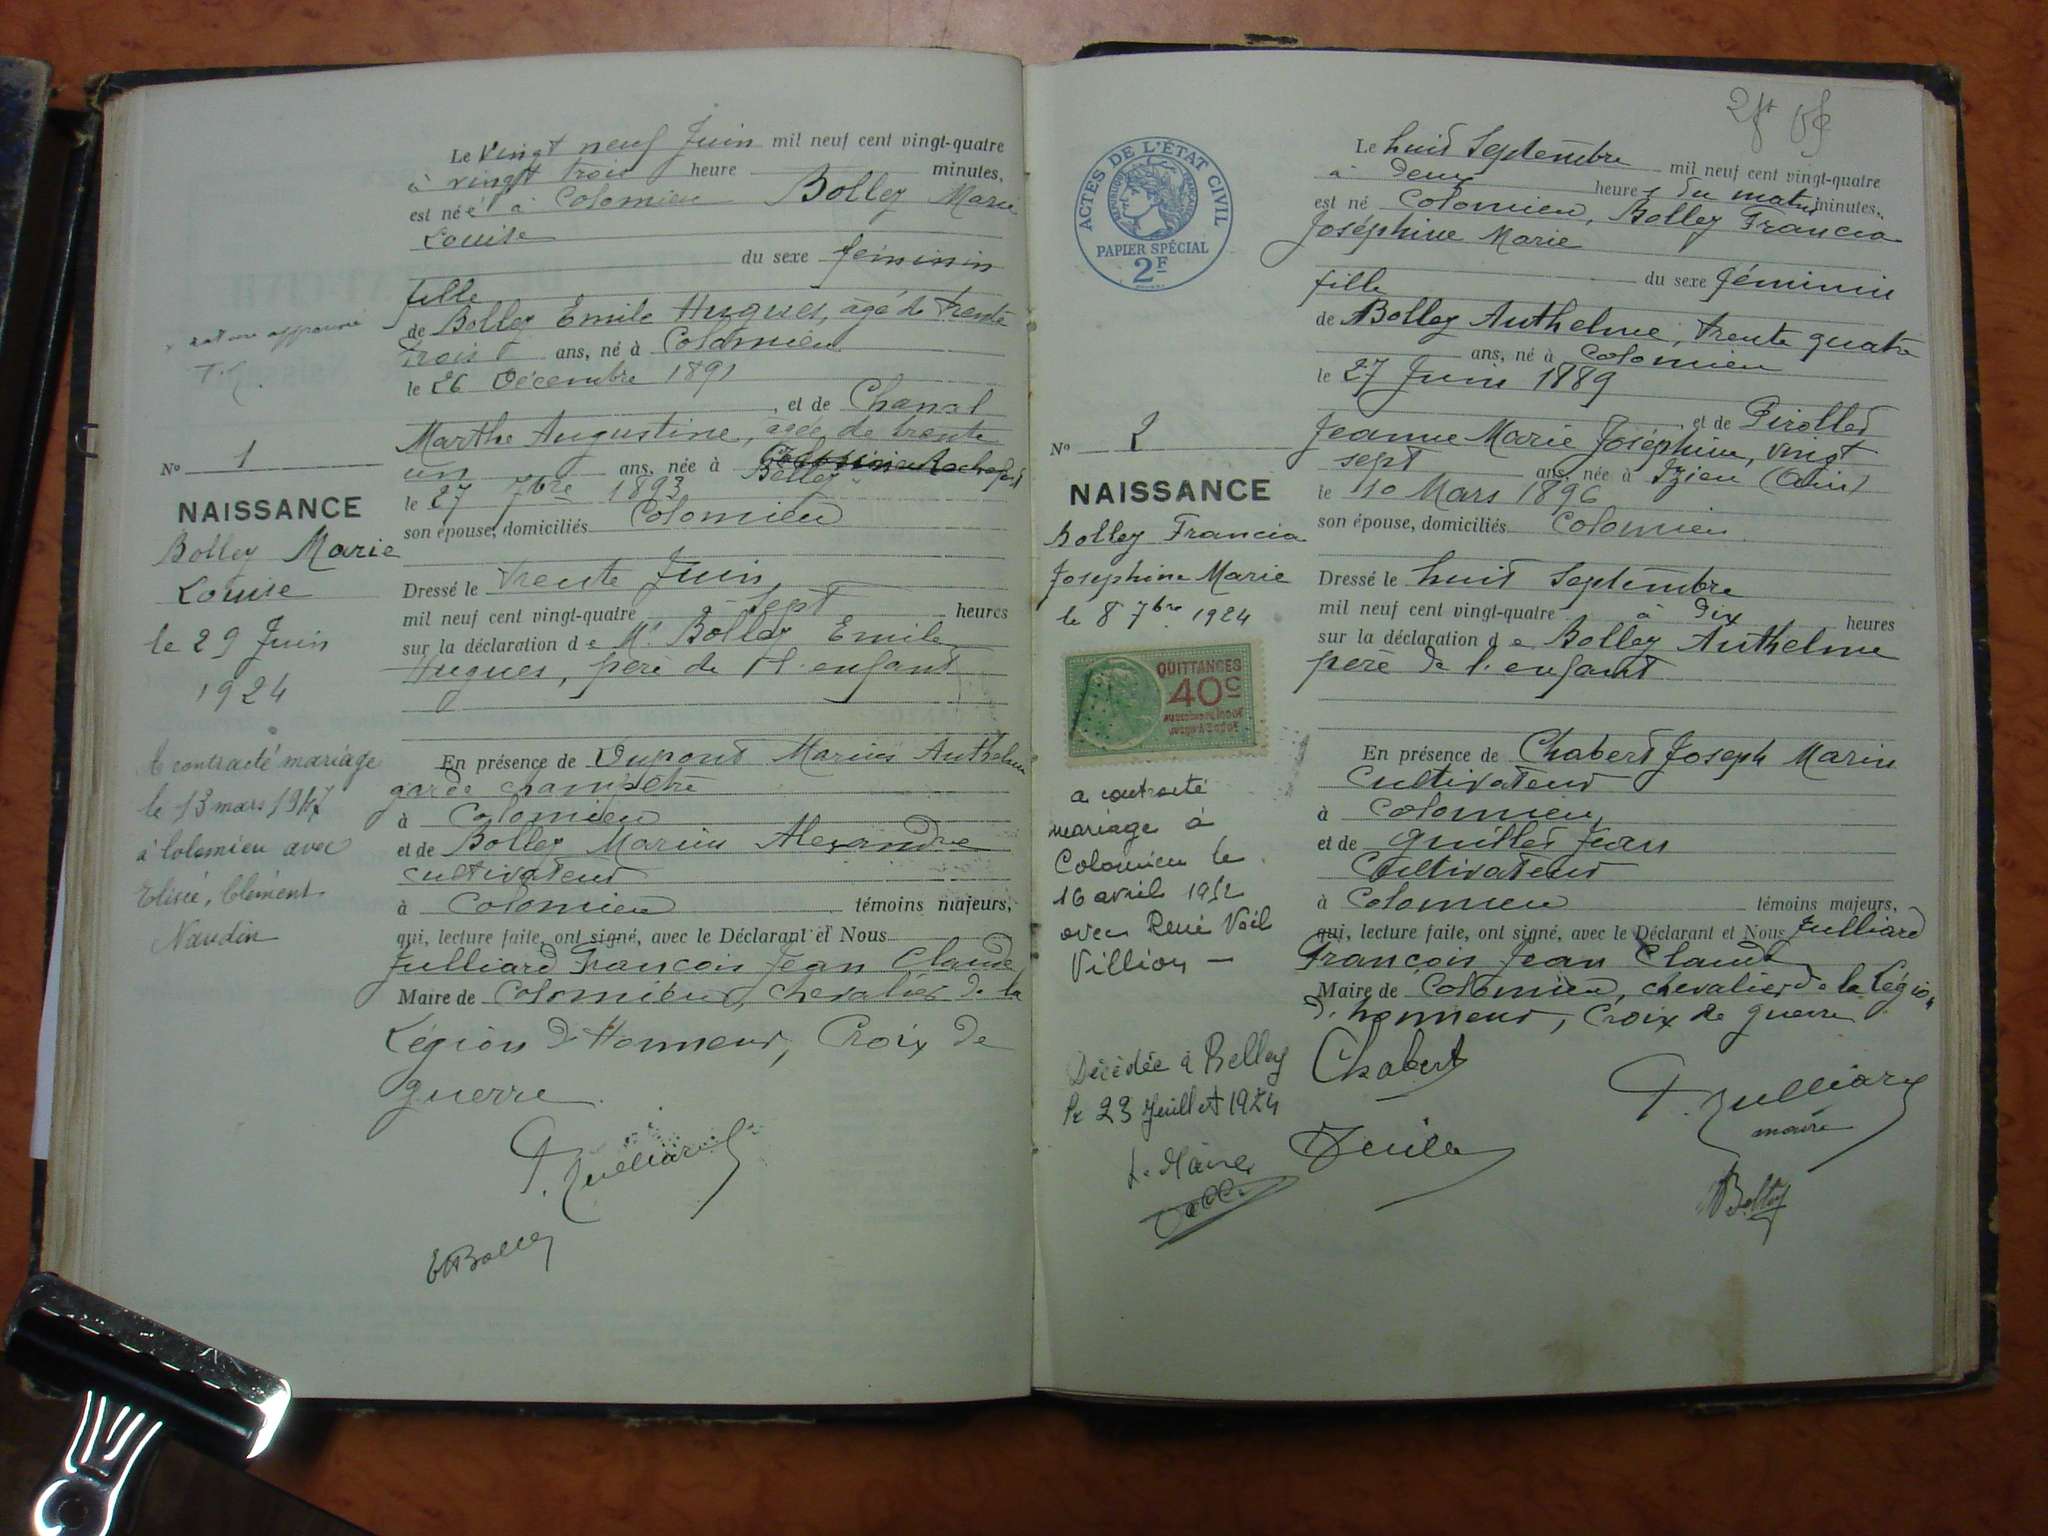 Le vingt neuf Juin mil neuf cent vingt-quatre
à vingt trois heure minutes,
est née à Colomieu Bolley Marie
Louise
du sexe féminin
fille
de Bolley Emile Hugues, agé de trente
trois ans, né à Colomieu
le 26 Décembre 1891
, et de Chanal
Marthe Augustine, agée de trente
un ans, née à Belley
le 27 7bre 1893
son épouse, domiciliés Colomieu
Dressé le trente Juin,
mil neuf cent vingt-quatre sept heures
sur la déclaration de Mr Bolley Emile
Hugues, père de l'enfant
En présence de Dupont Marius Anthelme
garde champêtre
à Colomieu
et de Bolley Marius Alexandre
cultivateur
à Colomieu témoins majeurs,
qui, lecture faite, ont signé, avec le Déclarant et Nous
Julliard François Jean Claude
Maire de Colomieu, chevalier de la
Légion d'Honneur, Croix de
guerre
F. Julliard
E Bolley
rature approuvé
No 1
NAISSANCE
Bolley Marie
Louise
le 29 Juin
1924
A contracté mariage
le 13 mars 1947
à Colomieu avec
Elisée, Clément
Naudin
ACTES DE L'ÉTAT CIVIL
RÉPUBLIQUE FRANÇAISE
PAPIER SPÉCIAL
2F
Le huit Septembre mil neuf cent vingt-quatre
à deux heures du matin minutes,
est né Colomieu, Bolley Francia
Joséphine Marie
du sexe féminin
fille
de Bolley Anthelme, trente quatre
ans, né à Colomieu
le 27 Juin 1889
et de Pirollet
Jeanne Marie Joséphine, vingt
sept ans, née à Izieu (Ain)
le 10 Mars 1896
son épouse, domiciliés Colomieu
Dressé le huit Septembre
mil neuf cent vingt-quatre à dix heures
sur la déclaration de Bolley Anthelme
père de l'enfant
En présence de Chabert Joseph Marin
Cultivateur
à Colomieu,
et de Quillet Jean
Cultivateur
à Colomieu témoins majeurs,
qui, lecture faite, ont signé, avec le Déclarant et Nous Julliard
François Jean Claude
Maire de Colomieu, chevalier de la Légion
d'honneur, Croix de guerre
Chabert
F. Julliard
maire
Bolley
No 2
NAISSANCE
Bolley Francia
Josephine Marie
le 8 7bre 1924
QUITTANCES
40c
a contracté
mariage à
Colomieu le
16 avril 1952
avec René Noël
Villion
Décédée à Belley
le 23 Juillet
Le Maire